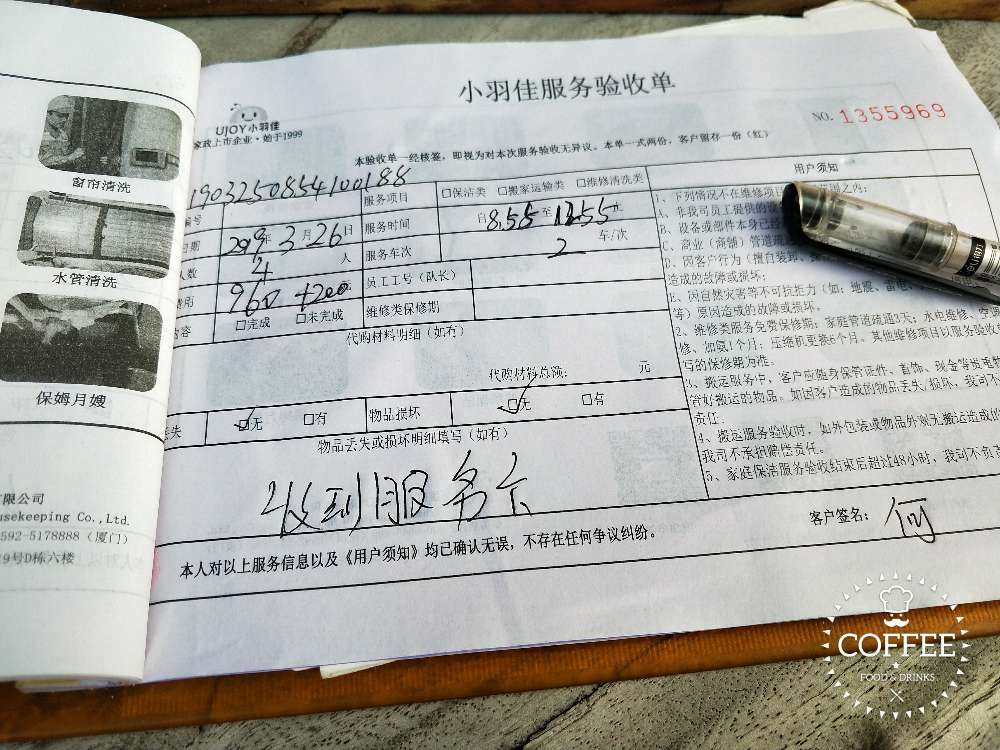 小羽佳服务验收单
UJOY小羽佳
家政上市企业·始于1999
NO. 1355969
本验收单一经核签，即视为对本次服务验收无异议。本单一式两份，客户留存一份（红）
1903250854100188
服务项目 □保洁类 □搬家运输类 □维修清洗类
2019年3月26日
服务时间 自8.55至1255止
4 人
服务车次 2 车/次
960 +200元
员工工号（队长）
□完成 □未完成
维修类保修期
代购材料明细（如有）
代购材料总额： 元
丢失 ☑无 □有 物品损坏 ☑无 □有
物品丢失或损坏明细填写（如有）
收到服务卡
本人对以上服务信息以及《用户须知》均已确认无误，不存在任何争议纠纷。
客户签名： 何
用户须知
1、下列情况不在维修项
A、非我司员工提供的
B、设备或部件本身已
C、商业（商铺）管道
D、因客户行为（擅自装
造成的故障或损坏；
E、因自然灾害等不可抗拒力（如：地震、雷电
等）原因造成的故障或损坏。
2、维修类服务免费保修期：家庭管道疏通3天；水电维修、空调
修、加氨1个月；压缩机更换6个月。其他维修项目以服务验收
写的保修期为准。
3、搬运服务中，客户应随身保管证件、首饰、现金等贵重物
管好搬运的物品。如因客户造成的物品丢失、损坏，我司不
责任。
4、搬运服务验收时，如外包装或物品外观无搬运造成损
我司不承担赔偿责任。
5、家庭保洁服务验收结束后超过48小时，我司不负责
窗帘清洗
水管清洗
保姆月嫂
有限公司
usekeeping Co.,Ltd.
592-5178888（厦门）
19号D栋六楼
COFFEE
FOOD & DRINKS